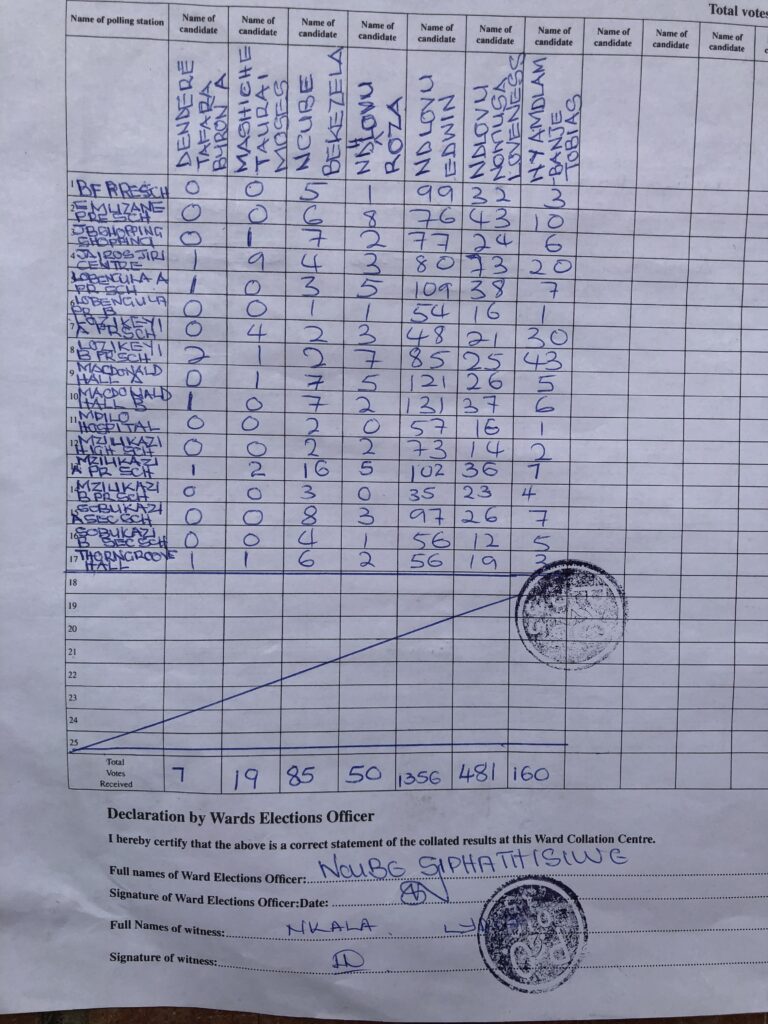 Total votes
Name of polling station Name of candidate Name of candidate Name of candidate Name of candidate Name of candidate Name of candidate Name of candidate Name of candidate Name of candidate Name of candidate
DENDERE TAFARA BYRON A
MASHICHE TAURAI MOSES
NCUBE BEKEZELA
NDLOVU ROZA
NDLOVU EDWIN
NDLOVU NOMUSA LOVENESS
NYAMDLAM BANJE TOBIAS
1 BF PRESCH 0 0 5 1 99 32 3
2 EMUZANE PRE SCH 0 0 6 8 76 43 10
3 JBSHOPPING SHOPPING 0 1 7 2 77 24 6
4 JAIROS JIRI CENTRE 1 9 4 3 80 73 20
LOBENGULA A PR SCH 1 0 3 5 109 38 7
6 LOBENGULA PR B 0 0 1 1 54 16 1
7 LOZIKEYI A PRSCH 0 4 2 3 48 21 30
8 LOZIKEYI B PRSCH 2 1 2 7 85 25 43
9 MACDONALD HALL A 0 1 7 5 121 26 5
10 MACDONALD HALL B 1 0 7 2 131 37 6
11 MPILO HOSPITAL 0 0 2 0 57 16 1
12 MZILIKAZI HIGH SCH 0 0 2 2 73 14 2
MZILIKAZI A PR SCH 1 2 16 5 102 36 7
MZILIKAZI B PRSCH 0 0 3 0 35 23 4
SOBUKAZI A SEC SCH 0 0 8 3 97 26 7
16 SOBUKAZI B SEC SCH 0 0 4 1 56 12 5
17 THORNGROOVE HALL 1 1 6 2 56 19 3
18
19
20
21
22
23
24
25
Total Votes Received 7 19 85 50 1356 481 160
Declaration by Wards Elections Officer
I hereby certify that the above is a correct statement of the collated results at this Ward Collation Centre.
Full names of Ward Elections Officer: NCUBE SIPHATHISIWE
Signature of Ward Elections Officer:Date:
Full Names of witness: NKALA
Signature of witness: